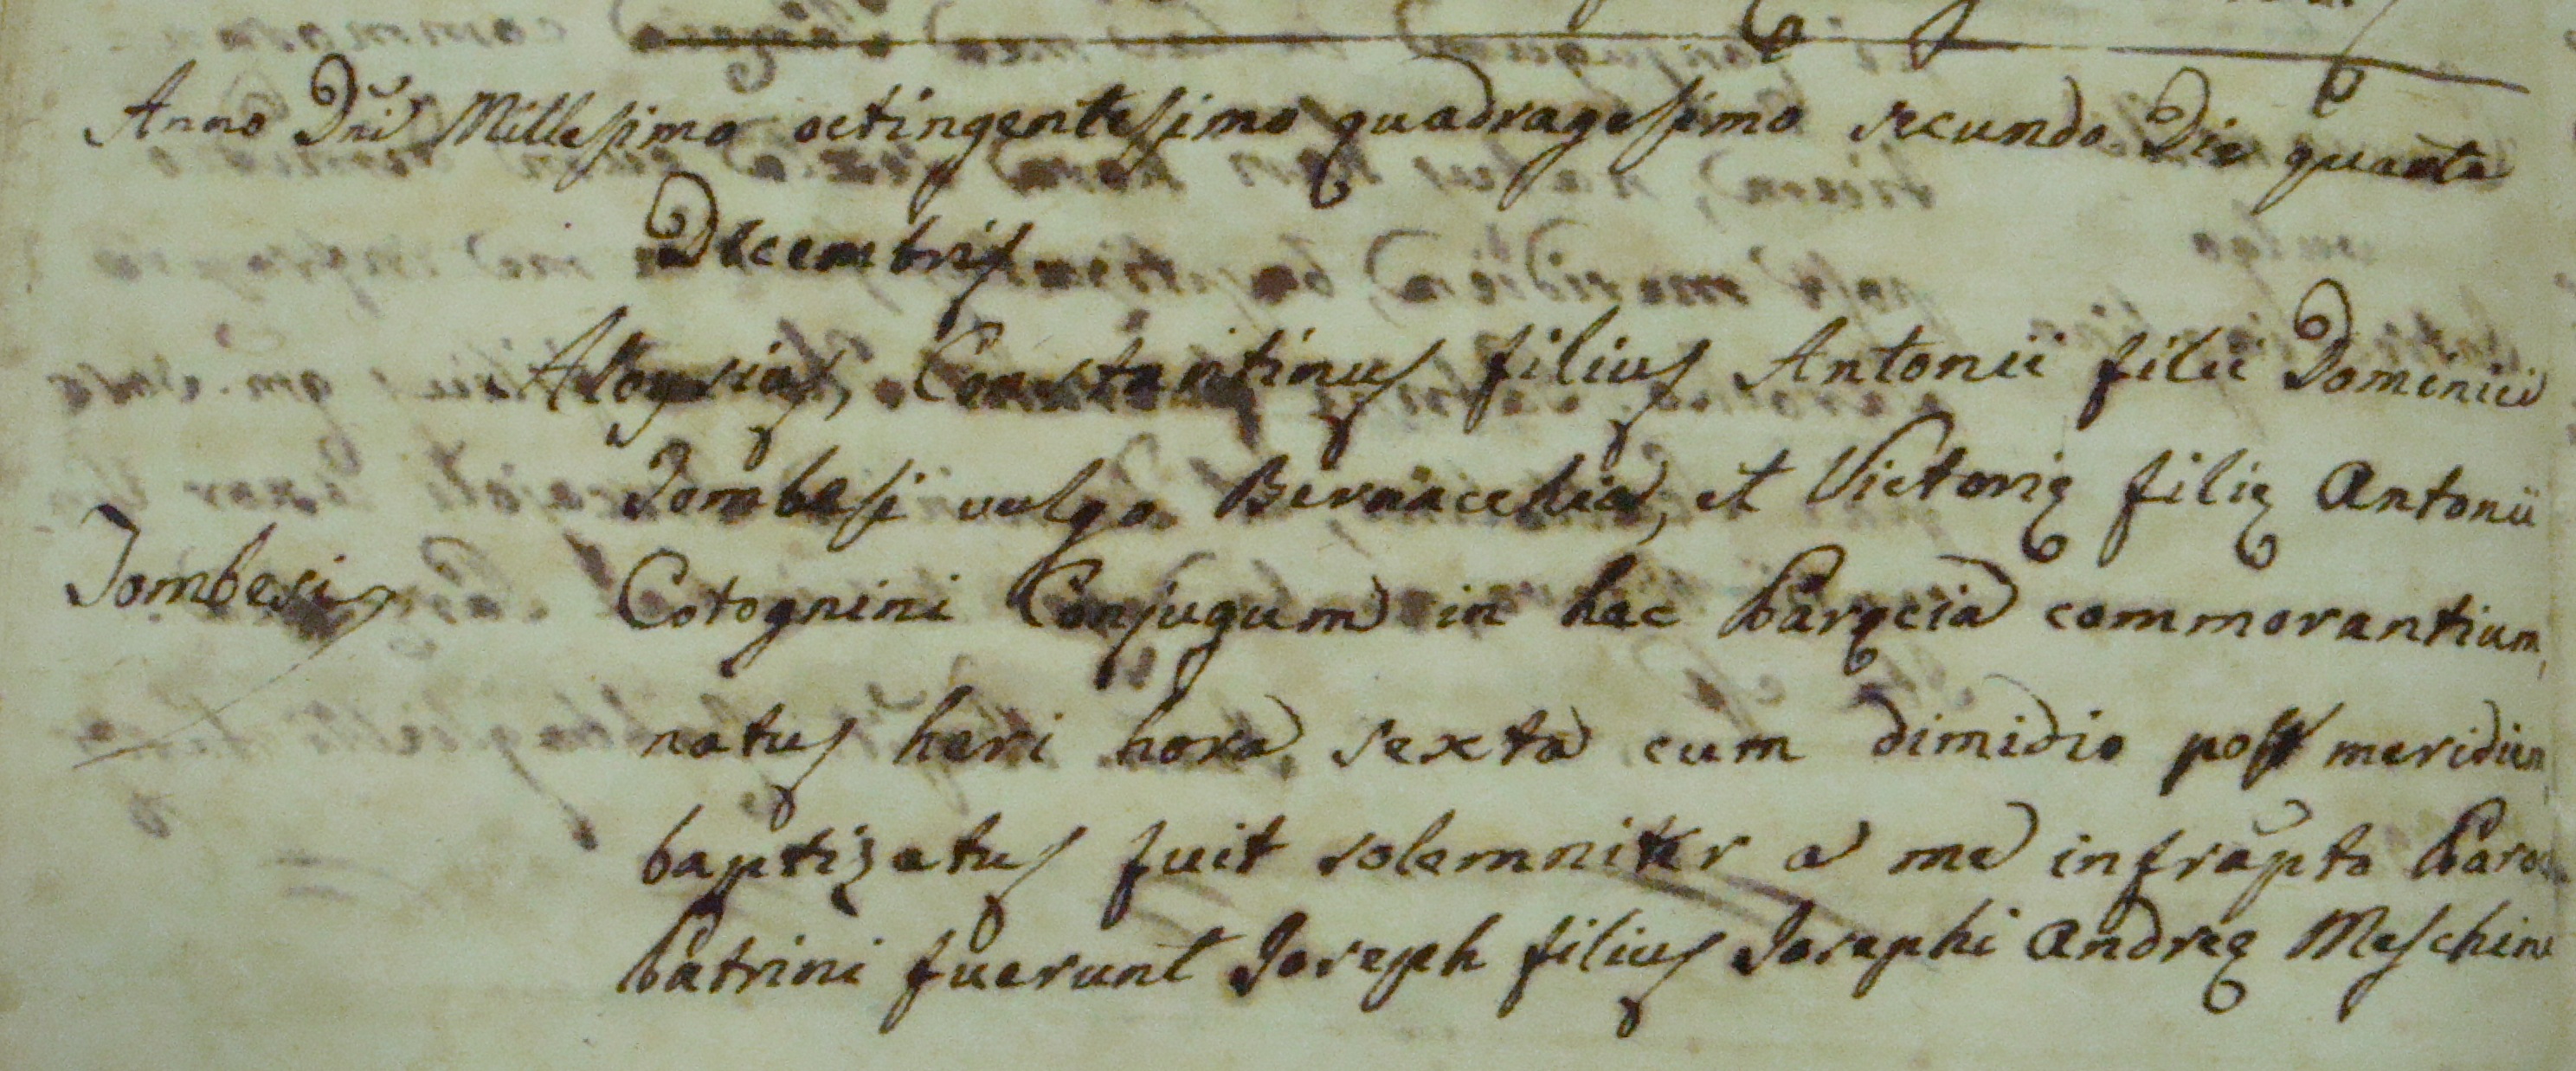 Anno Dni Millesimo octingentesimo quadragesimo secundo Die quarta
Decembris
Aloysius, Constantinus filius Antonii filii Dominici
Tombesi vulgo Bernacchia, et Victorię filię Antonii
Tombesi
Cotognini Conjugum in hac Paręcia commorantium,
natus heri hora sexta cum dimidio post meridiem
baptizatus fuit solemniter a me infrapto Paro
Patrini fuerunt Joseph filius Josephi Andreę Meschini